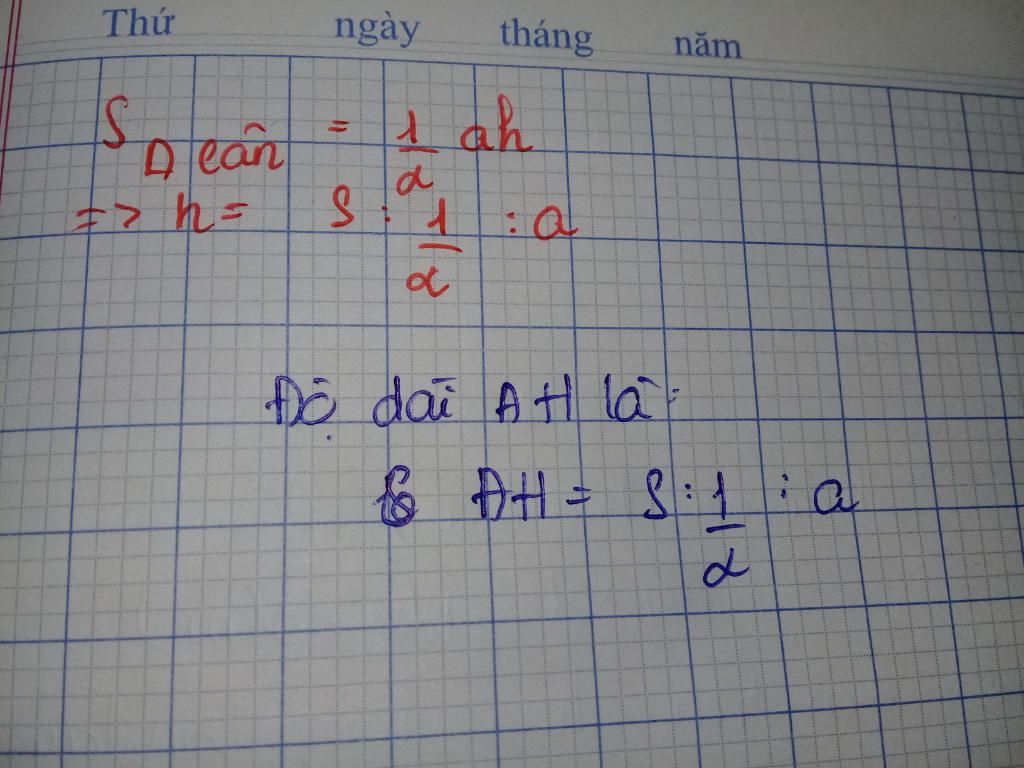 Thứ ngày tháng năm
S Δ cân = 1/2 ah
=> h = S : 1/2 : a
Độ dài AH là:
AH = S : 1/2 : a